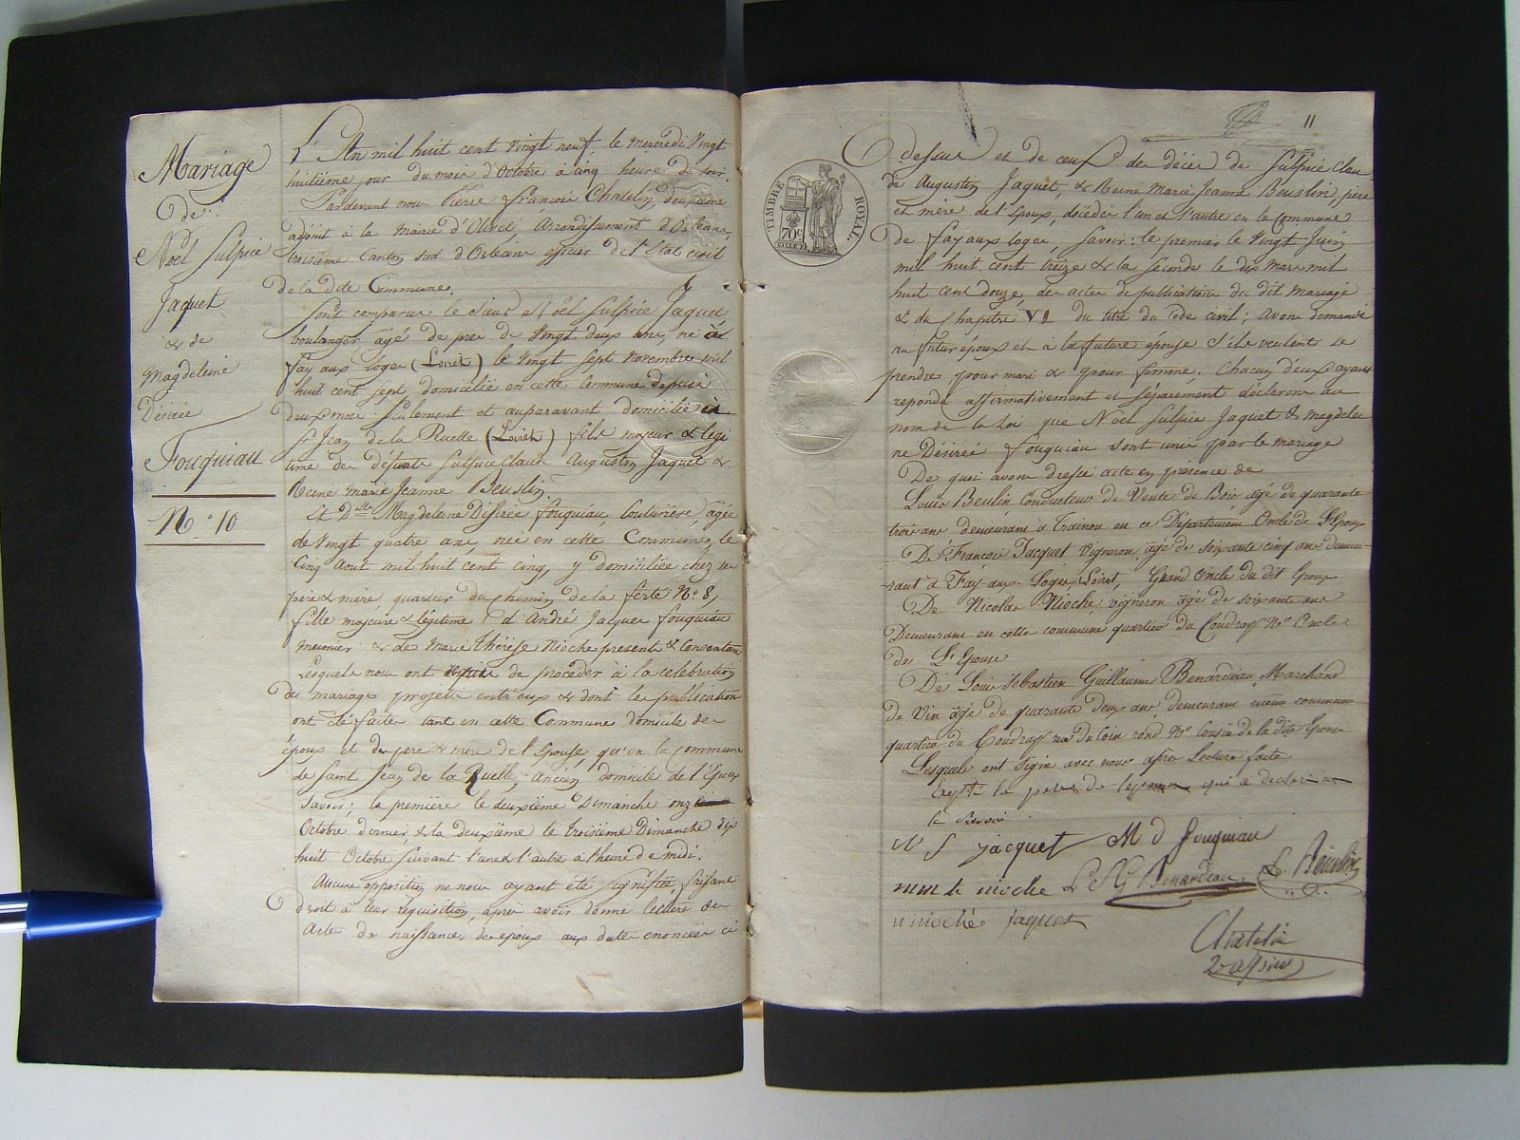 Mariage
de
Noël Sulpice
Jaquet
& de
Magdeleine
Désirée
Fouquiau
N° 10
L'An mil huit cent vingt neuf le mercredi Vingt
huitième jour du mois d'Octobre à cinq heures du soir.
Pardevant nous Pierre François Chatelin, deuxième
adjoint à la Mairie d'Olivet Arrondissement d'Orléans,
troisième Canton sud d'Orléans officier de l'Etat civil
de la dite Commune.
Sont comparus le Sieur Noël Sulpice Jaquet
boulanger, agé de près de Vingt deux ans, né à
fay aux Loges (Loiret) le Vingt Sept Novembre mil
huit cent sept domicilié en cette Commune depuis
deux mois seulement et auparavant domicilié à
St Jean de la Ruelle (Loiret) fils majeur & légi
time de défunts Sulpice Claude Augustin Jaquet &
Reine Marie Jeanne Beuslin.
Et Dlle Magdeleine Désirée fouquiau, Couturière, agée
de Vingt quatre ans, née en cette Commune, le
Cinq Aout mil huit cent cinq, y domiciliée chez ses
père & mère quartier du chemin de la ferté N° 8,
fille majeure & légitime d'André Jacques fouquiau
meunier & de Marie Thérèse Nioche présents & Consentans
Lesquels nous ont requis de procéder à la célébration
du mariage projetté entr'eux & dont les publications
ont été faites tant en cette Commune domicile des
époux et des père & mère de l'Epouse, qu'en la Commune
de Saint Jean de la Ruelle, ancien domicile de l'Epoux
Savoir; la première le deuxième Dimanche onze
Octobre dernier, & la deuxième le troisième Dimanche dix
huit Octobre suivant l'une & l'autre à l'heure de midi.
Aucune opposition ne nous ayant été signifiée, faisant
droit à leur réquisition, après avoir donné lecture des
Actes de naissance des époux aux dates énoncées ci
11
TIMBRE ROYAL
70c
dessus et de ceux de décès de Sulpice Clau
de Augustin Jaquet, & Reine Marie Jeanne Beuslin, père
et mère de l'Epoux, décédés l'un et l'autre en la Commune
de fay aux loges, Savoir: le premier le Vingt Juin
mil huit cent treize & la seconde le dix Mars mil
huit cent douze, des actes de publications du dit Mariage
& du Chapitre VI du titre du Code civil; Avons demandé
au futur époux et à la future épouse s'ils veulent se
prendre pour mari & pour femme. Chacun d'eux ayant
répondu affirmativement et séparément déclarons au
nom de la Loi que Noël Sulpice Jaquet & Magdelei
ne Désirée fouquiau sont unis par le mariage
De quoi avons dressé acte en présence de
Louis Beulin, Conducteur de Vente de Bois agé de quarante
trois ans demeurant à Trainou en ce Département Oncle de l'Epoux
De François Jacquet Vigneron agé de soixante cinq ans demeu-
rant à Fay aux Loges, Loiret, Grand Oncle du dit Epoux
De Nicolas Nioche vigneron agé de soixante ans
Demeurant en cette commune quartier du Coudray N° Oncle
de l'Epouse
De Louis Sébastien Guillaume Benardeau Marchand
de Vin agé de quarante deux ans demeurant même commune
quartier du Coudray rue du Coin rond N° Cousin de la dite Epouse
Lesquels ont signé avec nous après Lecture faite
Excepté le père de l'épouse qui a déclaré ne
le savoir
N S jacquet M D Fouquiau
nioche L S G Benardeau L. Beuslin
n nioche jaquet
Chatelin